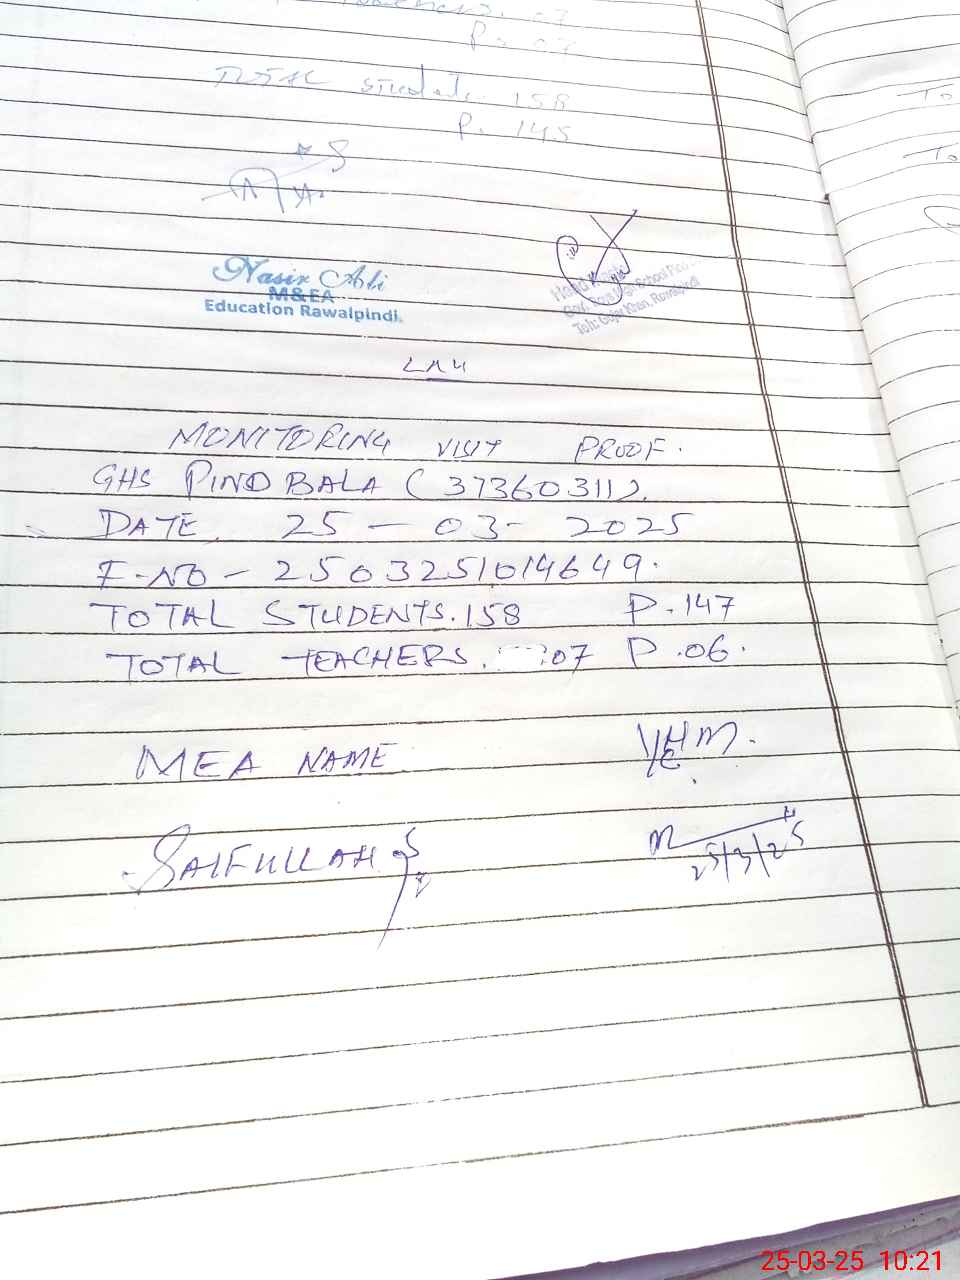 P. 07
TOTAL Students. 158
P. 145
Nasir Ali
M&EA
Education Rawalpindi.
Teh: Gujar Khan, Rawalpindi
MONITORING VISIT PROOF.
GHS PIND BALA (37360311).
DATE. 25 - 03 - 2025
F-NO - 2503251014649.
TOTAL STUDENTS. 158 P. 147
TOTAL TEACHERS. 07 P. 06.
MEA NAME
SAIFULLAH
25/3/25
25-03-25 10:21